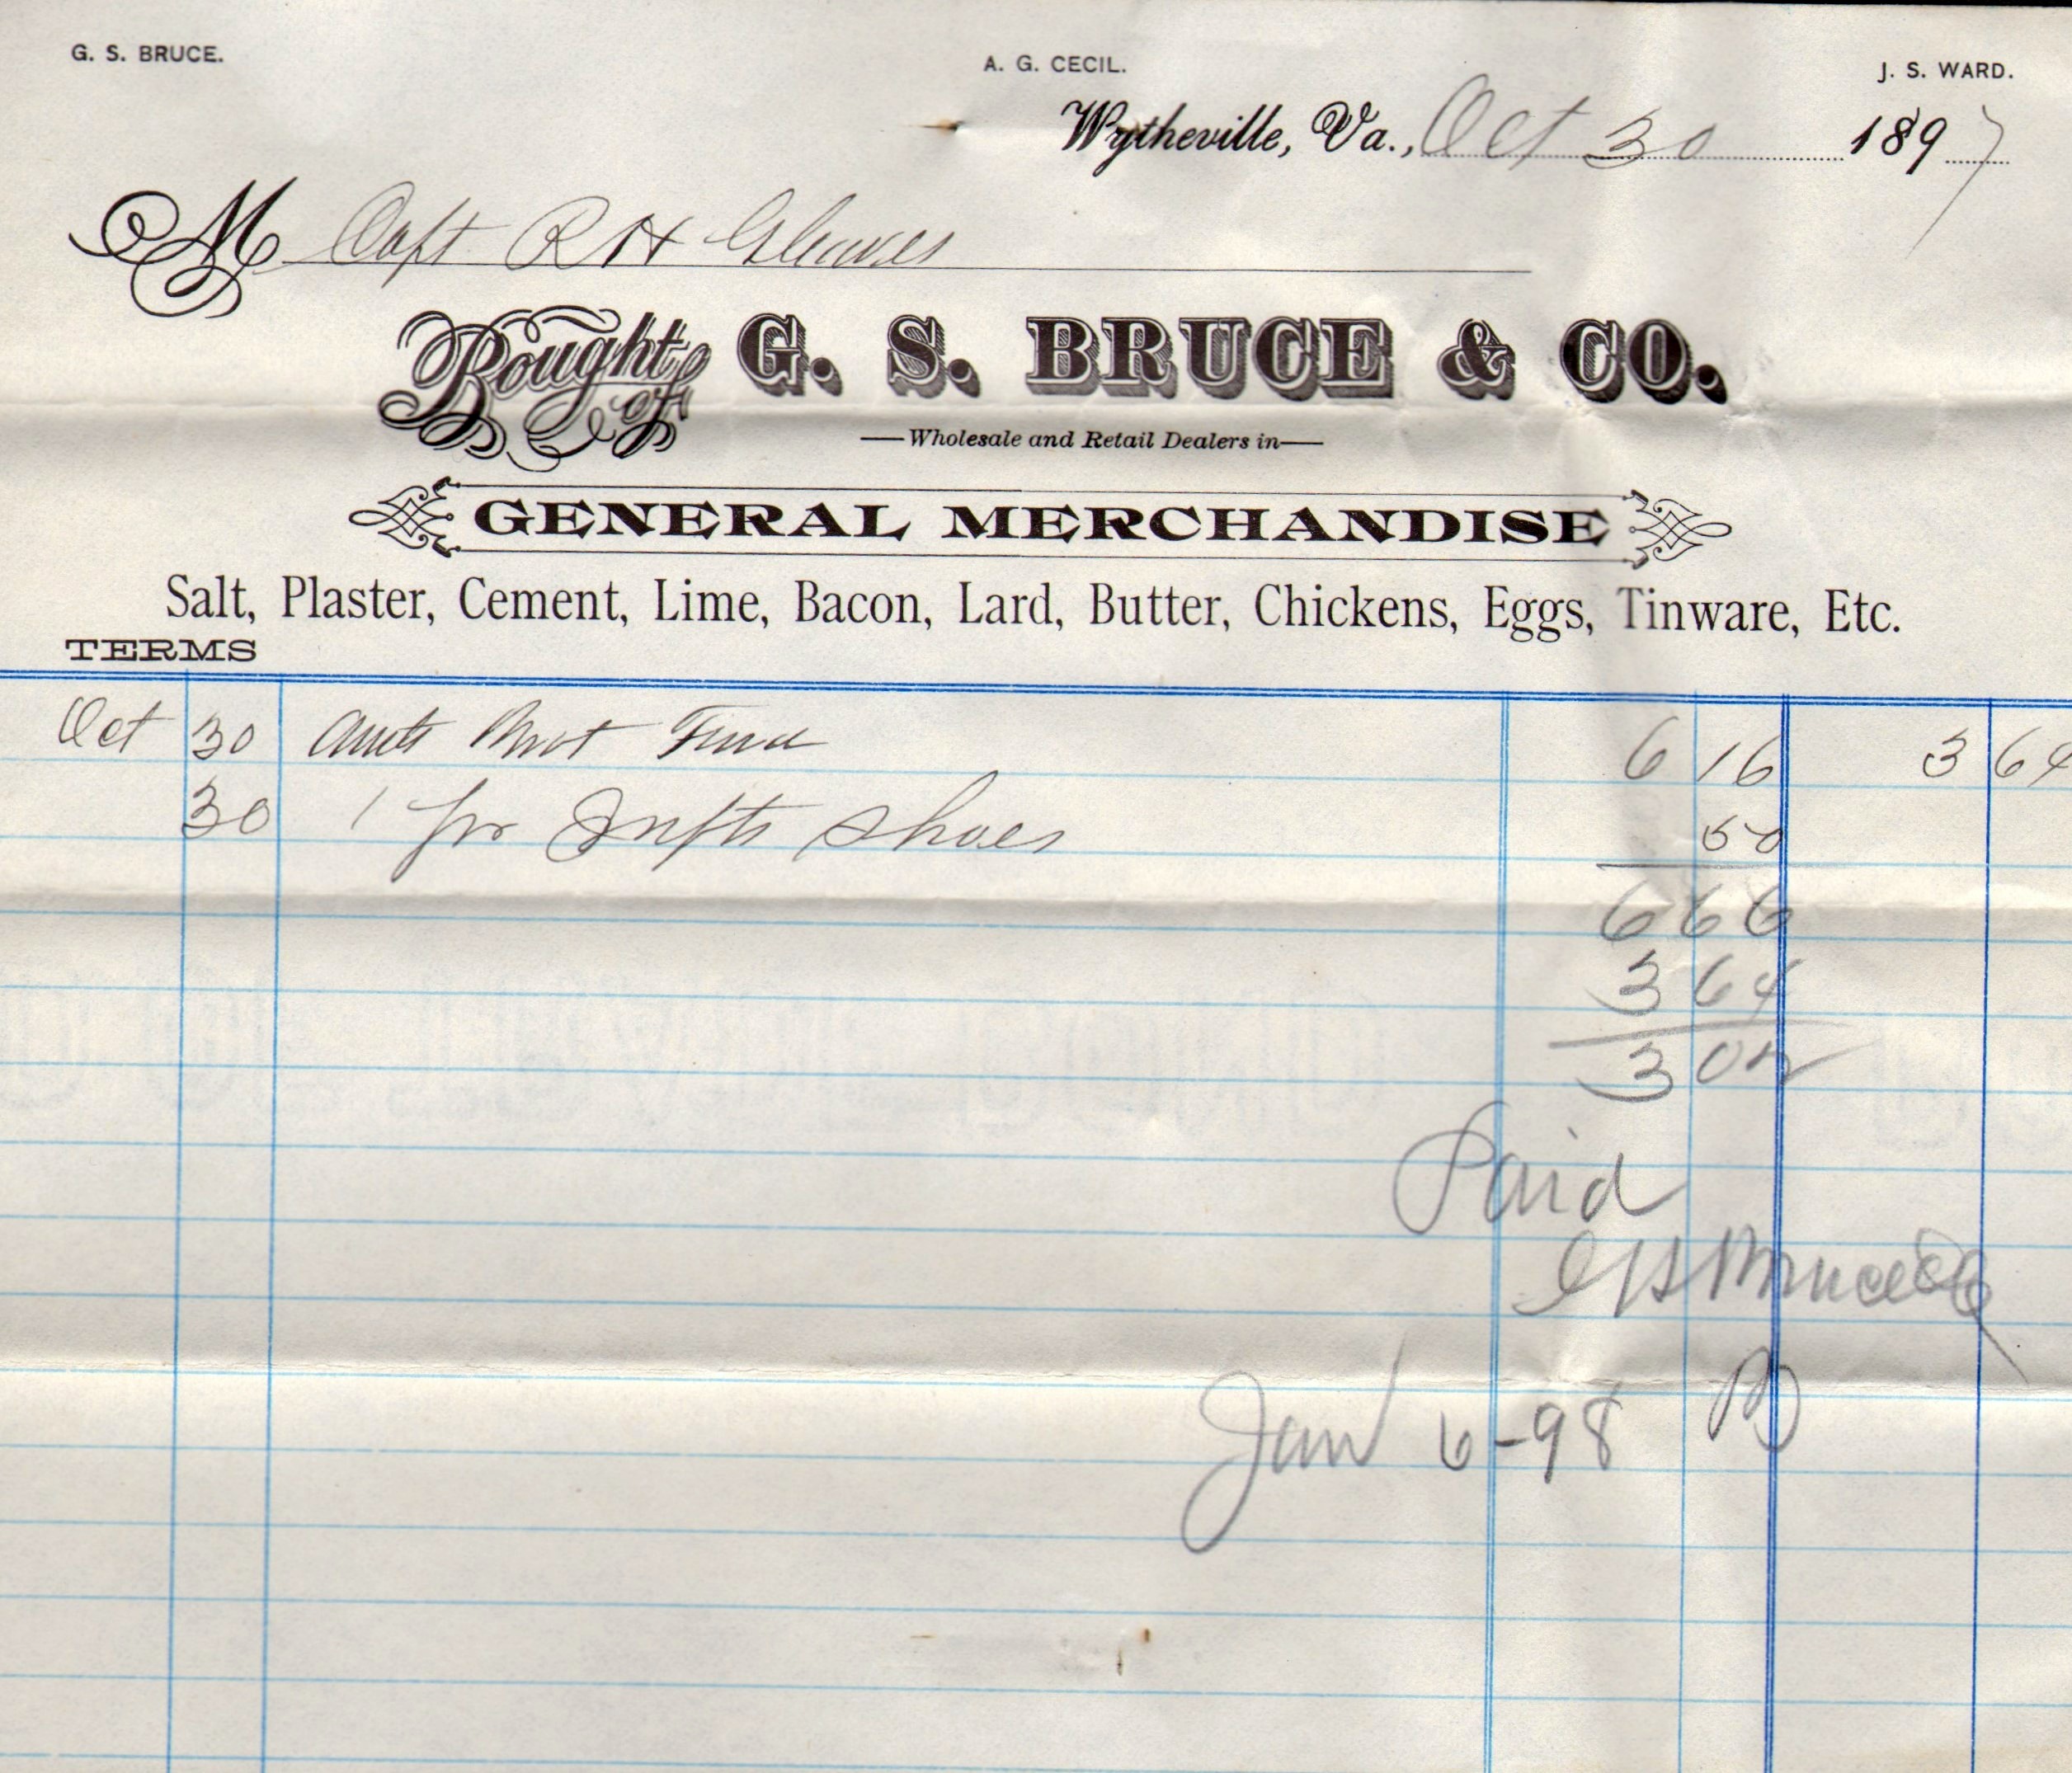 G. S. BRUCE. A. G. CECIL. J. S. WARD.
Wytheville, Va., Oct 30 1897
M Capt R H Gleaves
Bought of G. S. BRUCE & CO.
Wholesale and Retail Dealers in
GENERAL MERCHANDISE
Salt, Plaster, Cement, Lime, Bacon, Lard, Butter, Chickens, Eggs, Tinware, Etc.
TERMS
Oct 30 Amts Brot 6 16 3 64
30 1 pr Infts Shoes 50
6 66
3 64
3 02
Paid
G S Bruce & Co
Jan 6-98 B